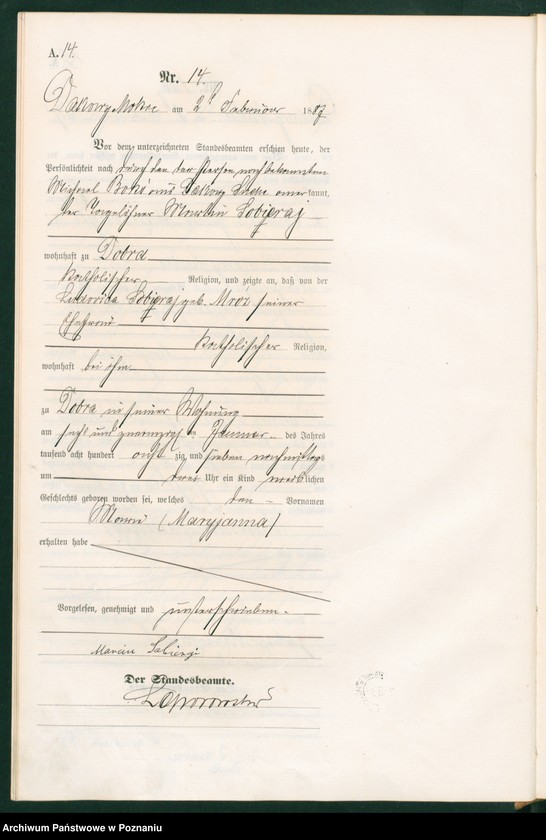 A. 14.
Nr. 14.
Dakowy Mokre am 2 Februar 1887
Vor dem unterzeichneten Standesbeamten erschien heute, der
Persönlichkeit nach durch den der Person nach bekannten
Michael aus Dakowy anerkannt,
der Tagelöhner Marcin
wohnhaft zu Dobra
katholischer Religion, und zeigte an, daß von der
geb. Mróz seiner
Ehefrau
katholischer Religion,
wohnhaft bei ihm
zu Dobra in seiner Wohnung
am sechs und zwanzigsten Januar des Jahres
tausend acht hundert achtzig und sieben nachmittags
um drei Uhr ein Kind weiblichen
Geschlechts geboren worden sei, welches den Vornamen
(Maryjanna)
erhalten habe
Vorgelesen, genehmigt und unterschrieben.
Marcin
Der Standesbeamte.
Archiwum Państwowe w Poznaniu